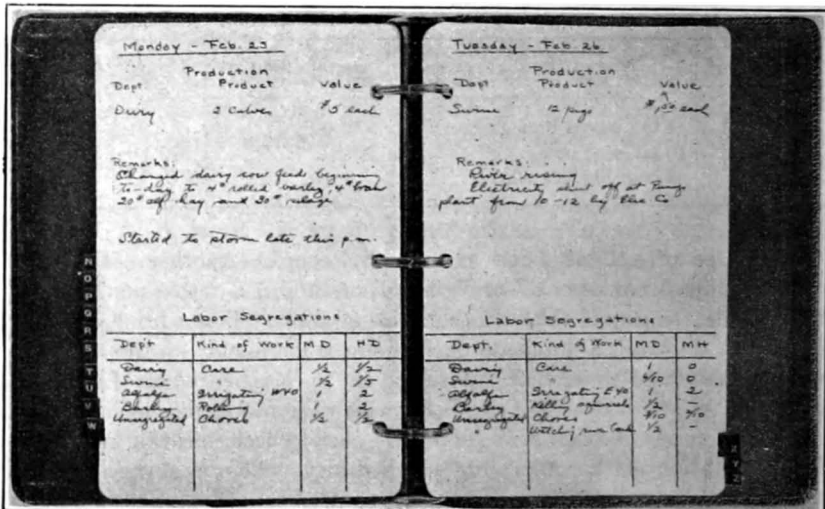 Monday - Feb. 25
Production
Dept Product Value
Dairy 2 Calves $5 each
Remarks:
Changed dairy cow feeds beginning
to-day to 4# rolled barley, 4# bran
20# alf hay and 30# silage
Started to storm late this p.m.
Labor Segregations
Dep't Kind of Work M D H D
Dairy Care 1/2 1/2
Swine " 1/2 1/5
Alfalfa Irrigating W40 1 2
Barley Rolling 1 2
Unsegregated Chores 1/2 1/2
Tuesday - Feb. 26
Production
Dept Product Value
Swine 12 pigs each
Remarks:
River rising
Electricity shut off at Pump
plant from 10-12 by Elec Co
Labor Segregations
Dept. Kind of Work M D M H
Dairy Care 1 0
Swine " 4/10 0
Alfalfa Irrigating E40 1 2
Barley Killing squirrels 1/2 -
Unsegregated Chores 4/10 4/10
Watching river bank 1/2 -
N
O
P
Q
R
S
T
U
V
W
X
Y
Z